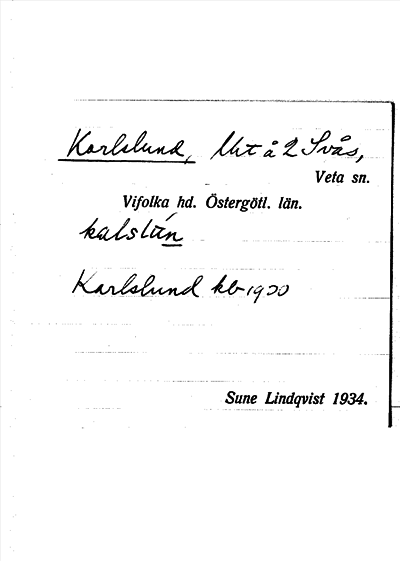 Karlslund, Ut å 2 Svås,
Veta sn.
Vifolka hd. Östergötl. län.
kalslún
Karlslund kb 1900
Sune Lindqvist 1934.